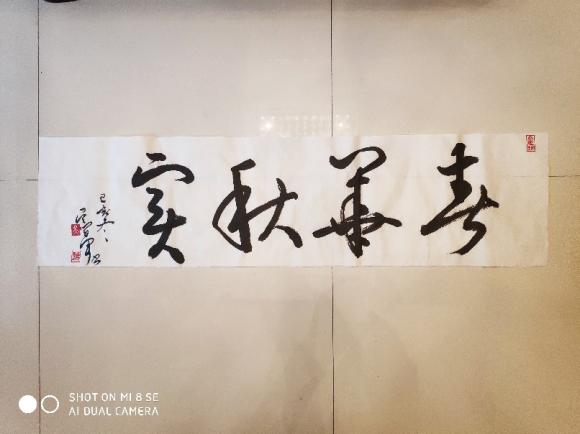 春華秋实
己亥冬
SHOT ON MI 8 SE
AI DUAL CAMERA